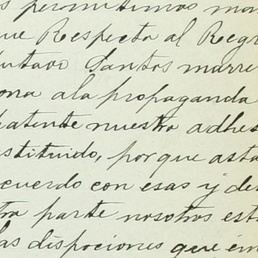 s permitimos man
que Respecto al Regre
ustavo Santos marre
ona ala propaganda
patente nuestra adhes
nstituido, por que asta
cuerdo con esas y de
tra parte nosotros est
las dispociones que em